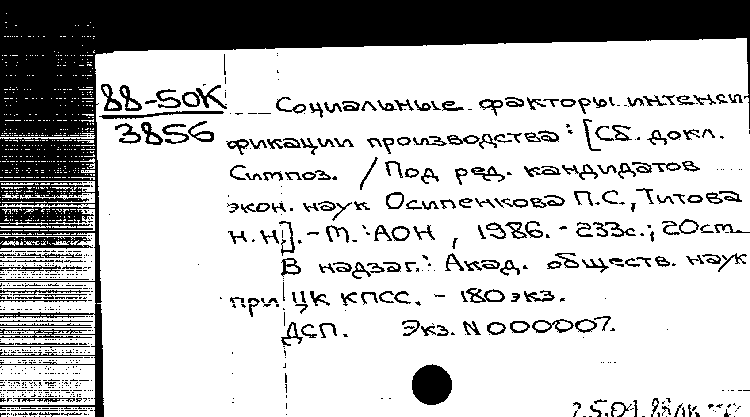 88-50К Социальные факторы интенси-
3856 фикации производства: [Сб. докл.
Симпоз. / Под ред. кандидатов
экон. наук Осипенкова П.С., Титова
Н.Н.]. - М.: АОН, 1986. - 233с.; 20см.
В надзаг.: Акад. обществ. наук
при ЦК КПСС. - 180 экз.
ДСП. Экз. N 000007.